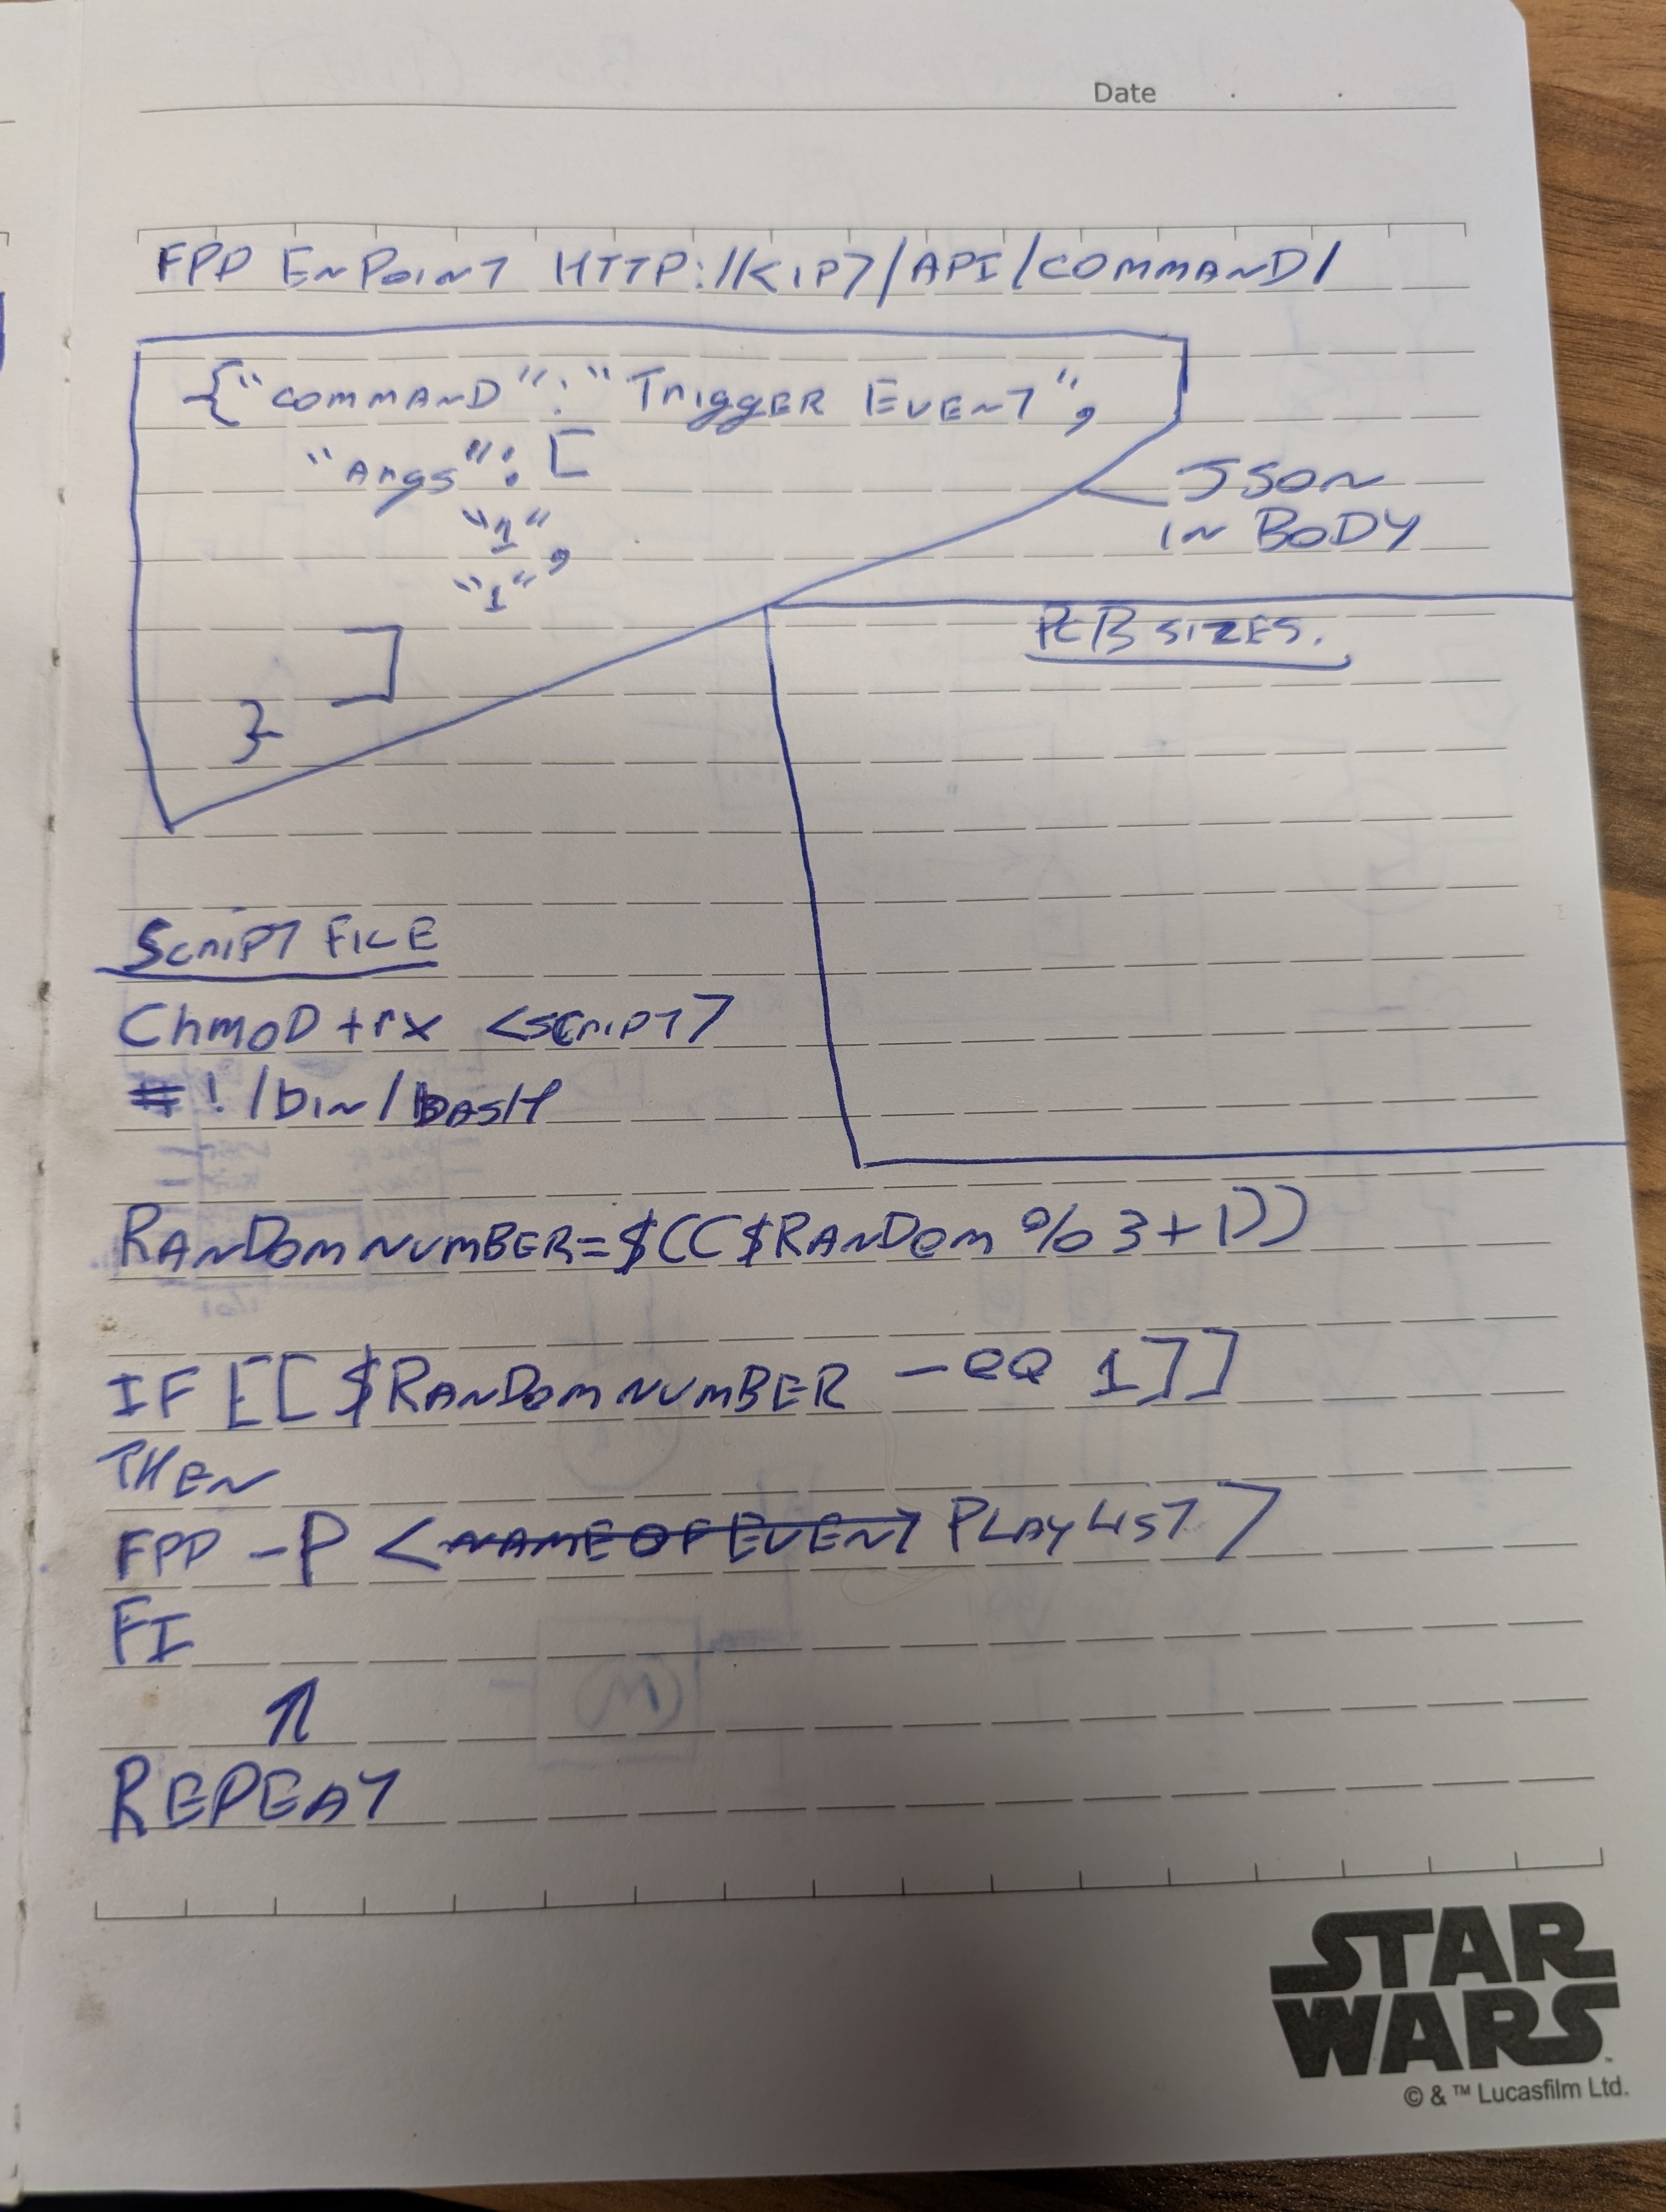 Date . .
FPD ENPOINT HTTP://<IP>/API/COMMAND/
{"COMMAND":"TriggER EVENT",
"Args": [
"1",
"1"
]
}
JSON
IN BODY
PCB SIZES.
SCRIPT FILE
ChmoD +rx <SCRIPT>
#!/bin/bASH
RANDOMNUMBER=$(($RANDOM % 3+1))
IF [[ $RANDOMNUMBER -eQ 1]]
THEN
FPP -P <NAME OF EVENT PLAYLIST>
FI
REPEAT
STAR
WARS
© & ™ Lucasfilm Ltd.